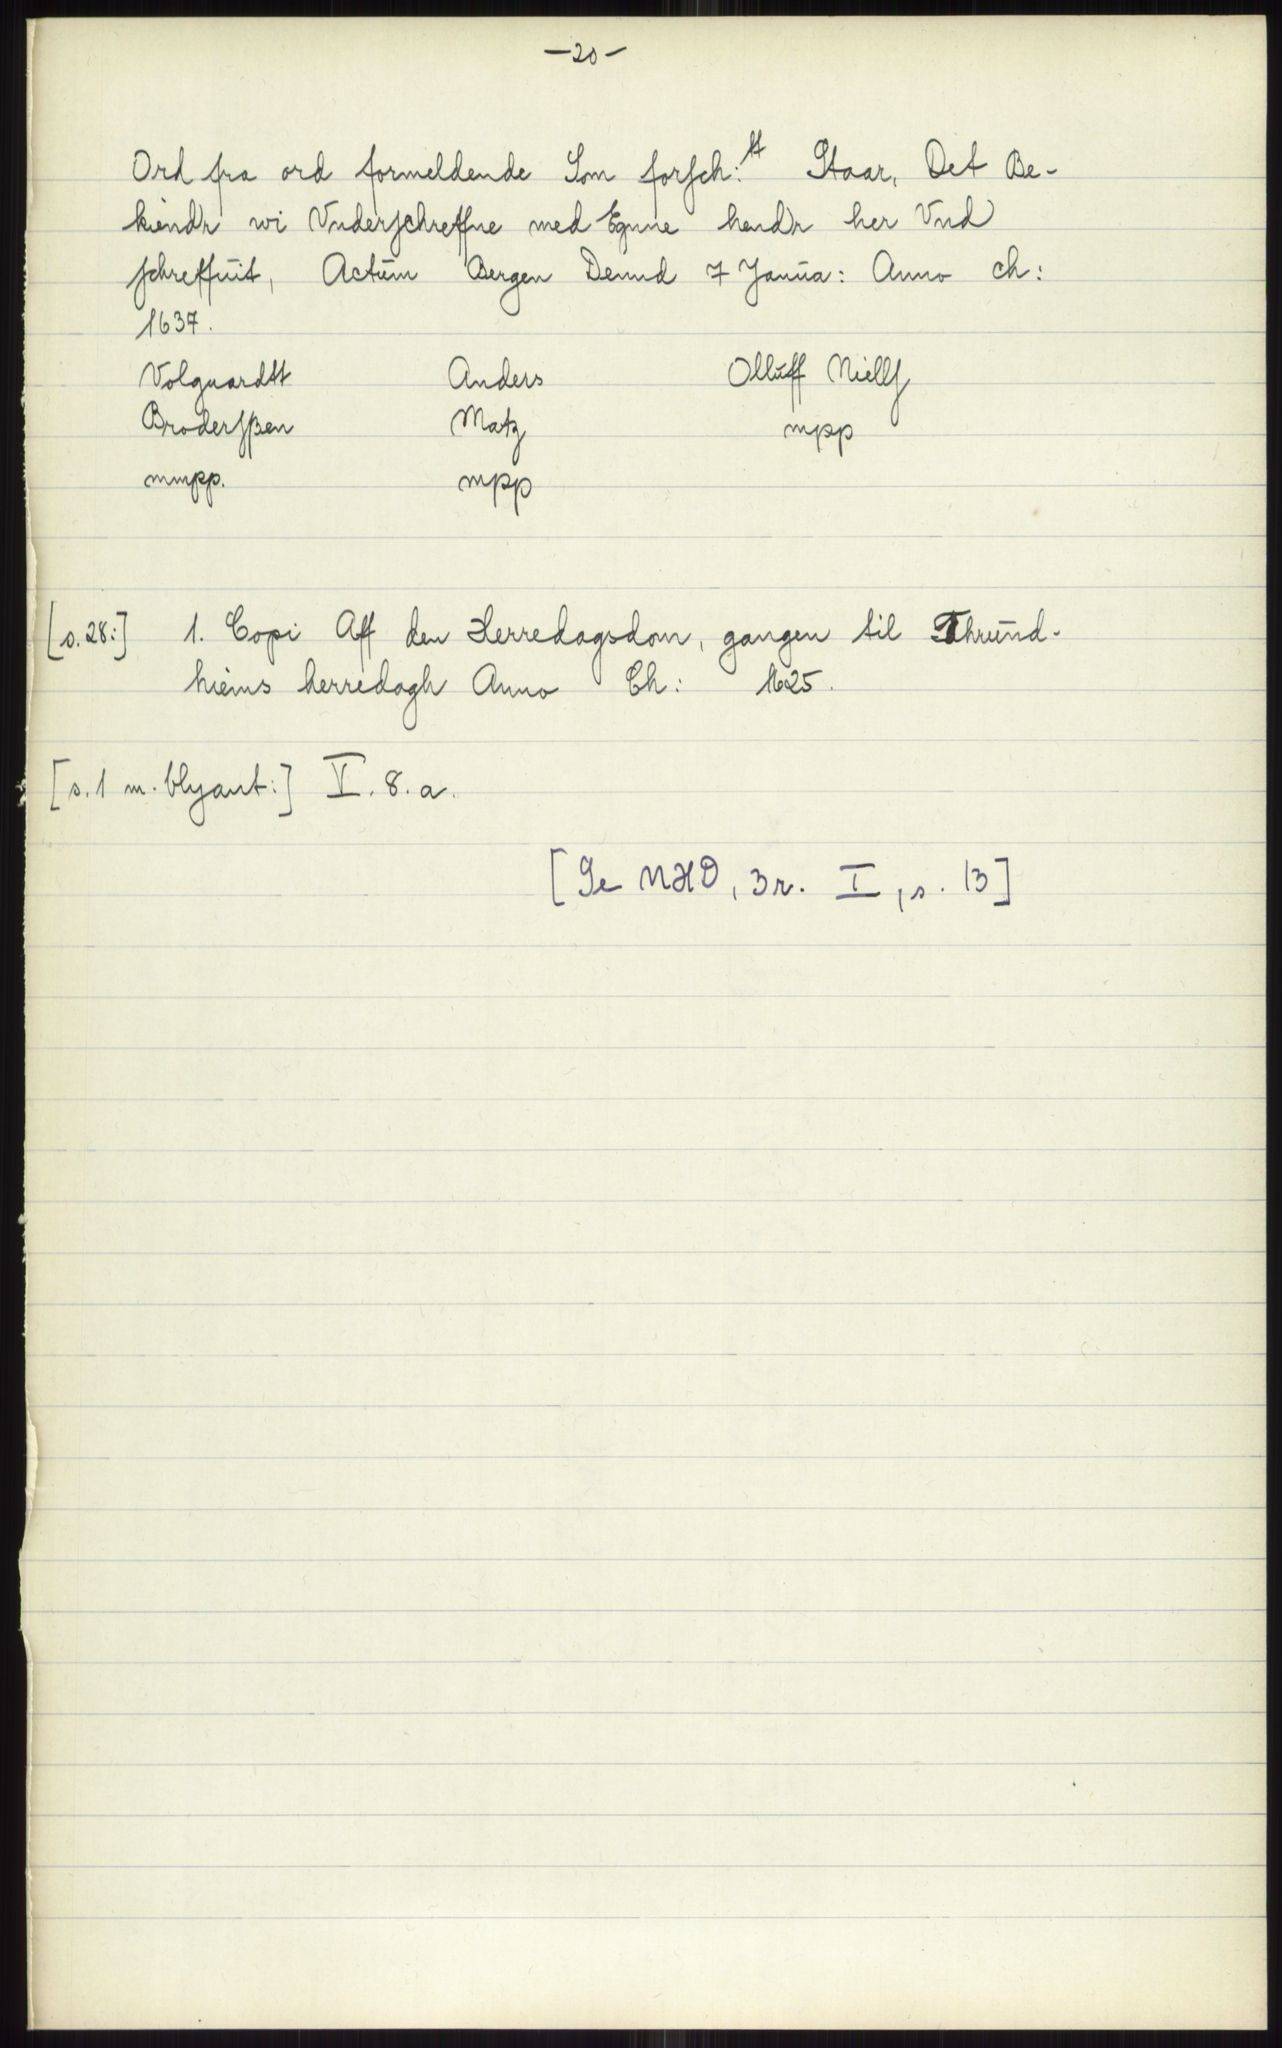 -20-
Ord fra ord formeldende Som forsch:tt Staar, Det Be-
kiendr wi Vnderschreffne med Egnne hendr her Vnd
schreffuit, Actum Bergen Dennd 7 Janua: Anno ch:
1637.
Volquardtt Anders Olluff Niells
Brodersßen Matz mpp
mmpp. mpp
[s.28:] 1. Copi Aff den Herredagsdom, gangen til Thrund-
hiems herredagh Anno Ch: 1625.
[s.1 m. blyant:] V. 8. a.
[Se NHD, 3r. I, s. 13]